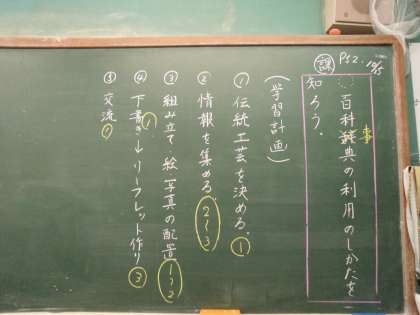 P52. 10/5
課
百科辞典の利用のしかたを
事
知ろう。
(学習計画)
① 伝統工芸を決める。①
② 情報を集める。2〜3
③ 組み立て 絵・写真の配置 1〜2
④ 下書き→リーフレット作り ③
①
⑤ 交流 ①